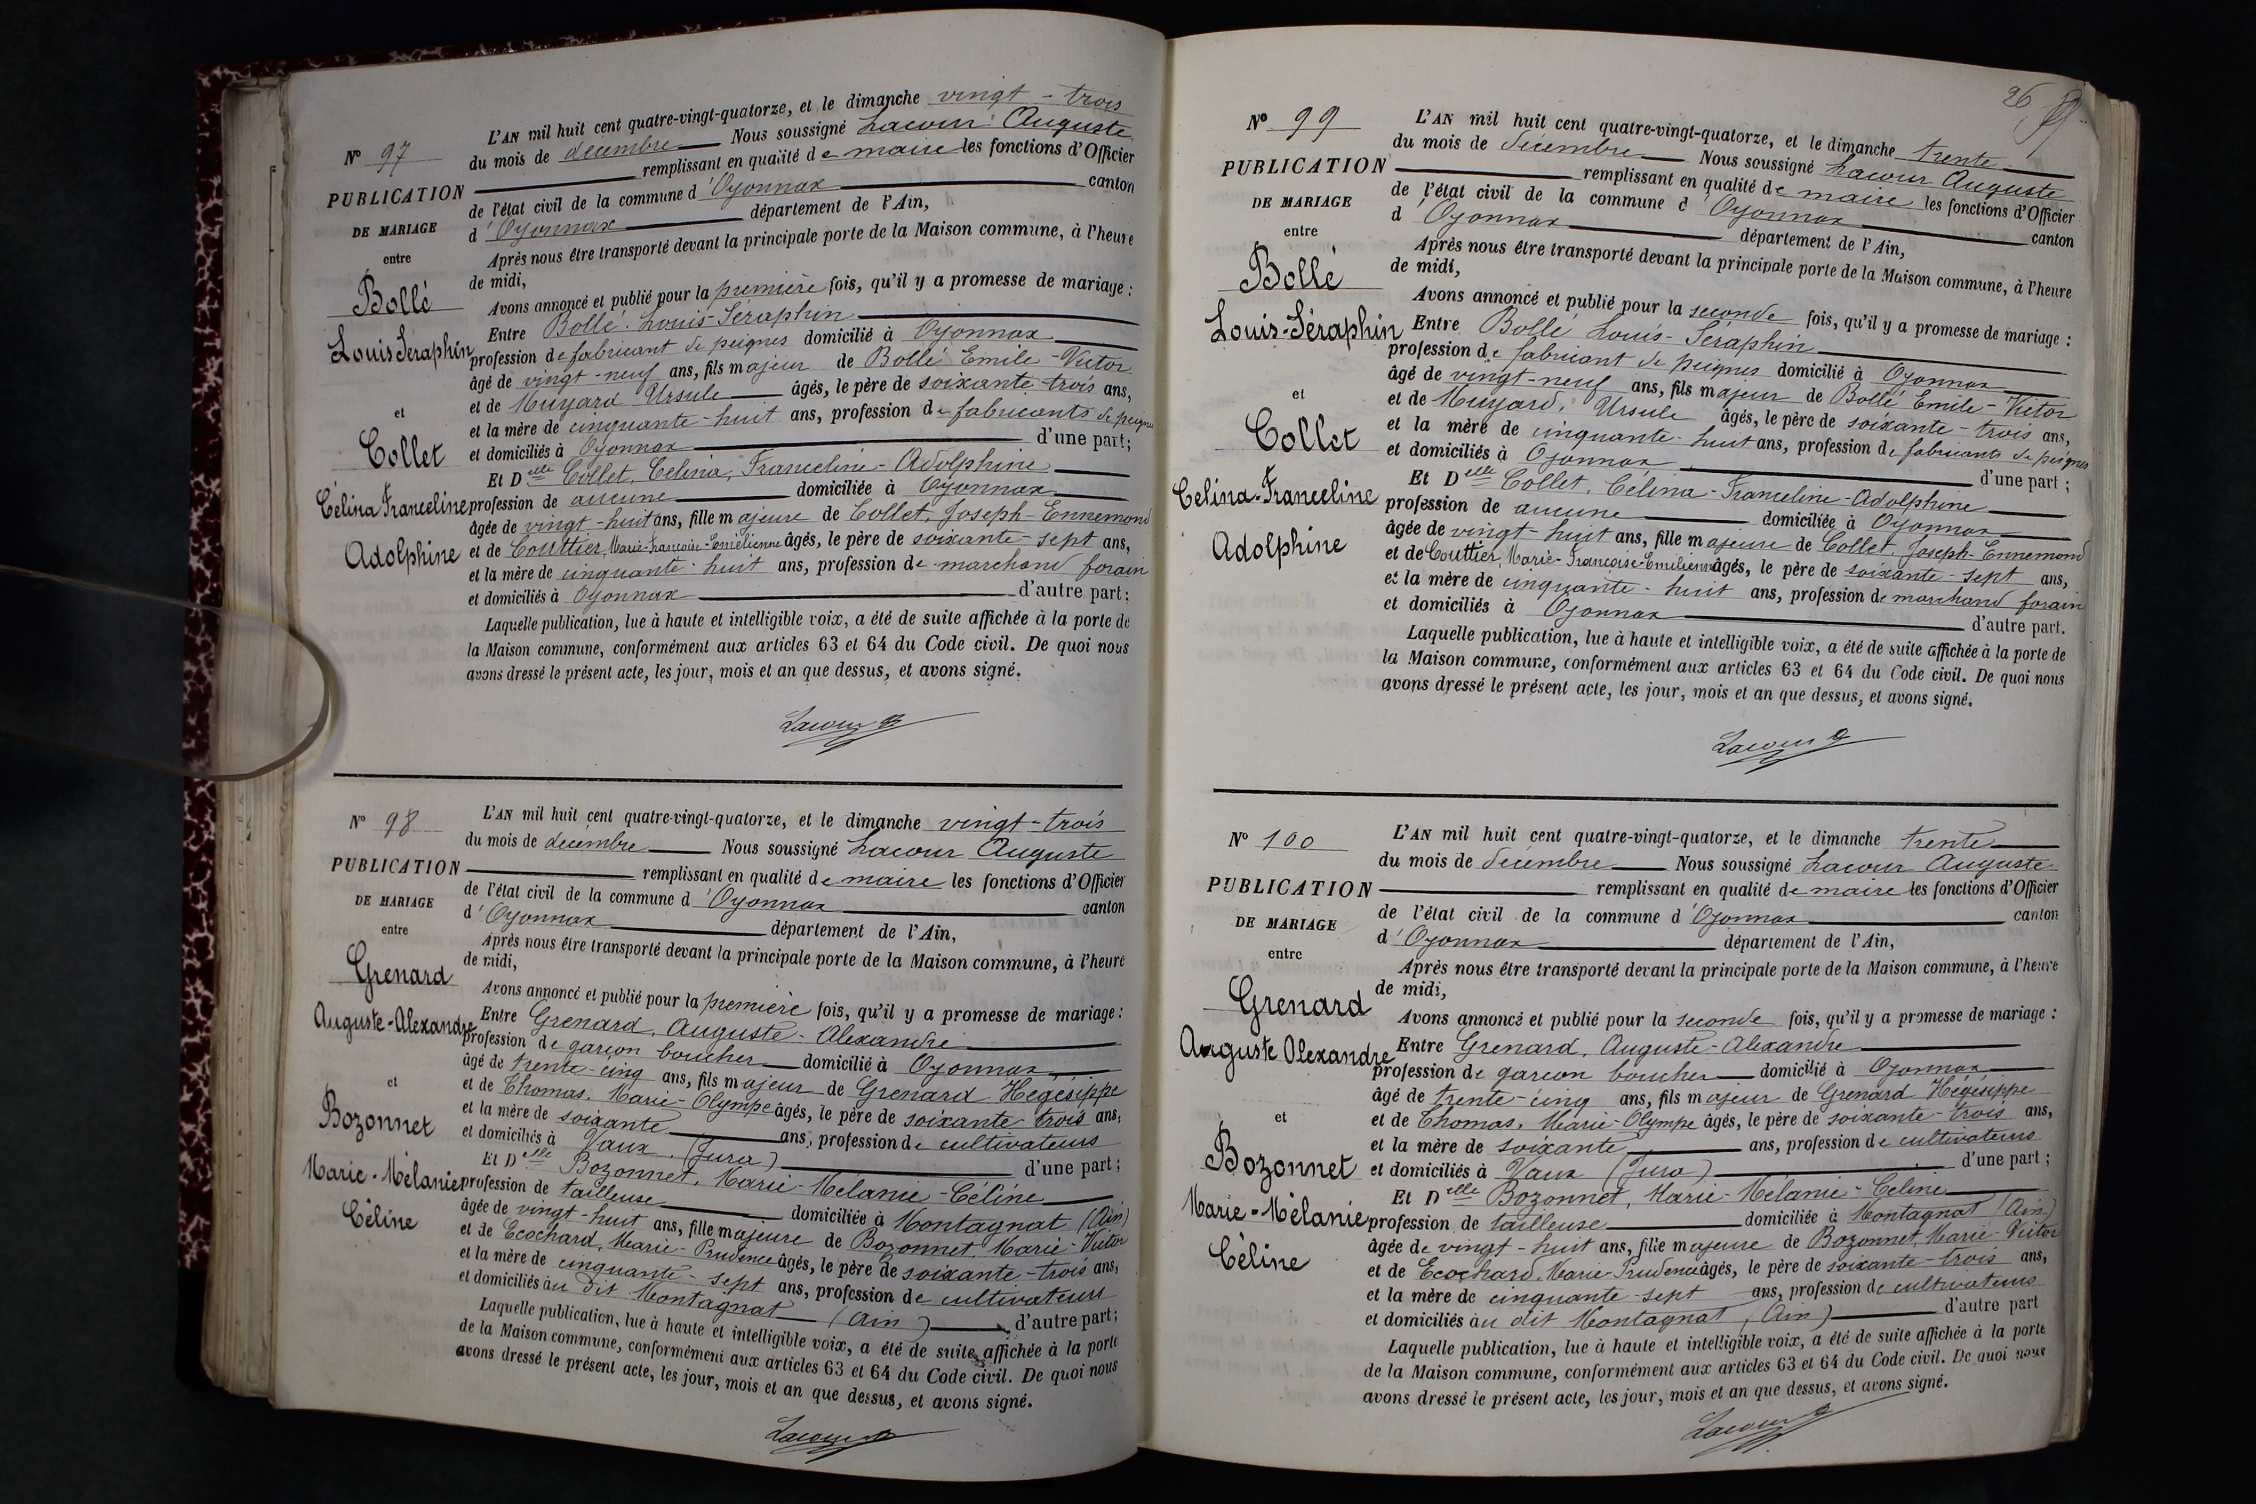 L'AN mil huit cent quatre-vingt-quatorze, et le dimanche vingt-trois
N° 97
du mois de décembre Nous soussigné Lacour Auguste
PUBLICATION
remplissant en qualité de maire les fonctions d'Officier
de l'état civil de la commune d'Oyonnax canton
DE MARIAGE
d'Oyonnax département de l'Ain,
entre
Après nous être transporté devant la principale porte de la Maison commune, à l'heure
de midi,
Bollé
Avons annoncé et publié pour la première fois, qu'il y a promesse de mariage :
Entre Bollé Louis-Séraphin
Louis Séraphin
profession de fabricant de peignes domicilié à Oyonnax
âgé de vingt-neuf ans, fils majeur de Bollé Emile-Victor
et de Muyard Ursule âgés, le père de soixante-trois ans,
et
et la mère de cinquante-huit ans, profession de fabricants de peignes
et domiciliés à Oyonnax d'une part;
Collet
Et Delle Collet, Célina, Franceline-Adolphine
Célina Franceline
profession de aucune domiciliée à Oyonnax
âgée de vingt-huit ans, fille majeure de Collet, Joseph-Ennemond
Adolphine
et de Couttier, Marie-Françoise-Emélienne âgés, le père de soixante-sept ans,
et la mère de cinquante-huit ans, profession de marchand forain
et domiciliés à Oyonnax d'autre part;
Laquelle publication, lue à haute et intelligible voix, a été de suite affichée à la porte de
la Maison commune, conformément aux articles 63 et 64 du Code civil. De quoi nous
avons dressé le présent acte, les jour, mois et an que dessus, et avons signé.
Lacour A
N° 98
L'AN mil huit cent quatre-vingt-quatorze, et le dimanche vingt-trois
du mois de décembre Nous soussigné Lacour Auguste
PUBLICATION
remplissant en qualité de maire les fonctions d'Officier
DE MARIAGE
de l'état civil de la commune d'Oyonnax canton
d'Oyonnax département de l'Ain,
entre
Après nous être transporté devant la principale porte de la Maison commune, à l'heure
de midi,
Grenard
Avons annoncé et publié pour la première fois, qu'il y a promesse de mariage :
Auguste-Alexandre
Entre Grenard, Auguste-Alexandre
profession de garçon boucher domicilié à Oyonnax
âgé de trente-cinq ans, fils majeur de Grenard Hegésippe
et
et de Thomas, Marie-Olympe âgés, le père de soixante-trois ans,
Bozonnet
et la mère de soixante ans, profession de cultivateurs
et domiciliés à Vaux (Jura) d'une part;
Marie-Mélanie
Et Delle Bozonnet, Marie-Mélanie-Céline
profession de tailleuse domiciliée à Montagnat (Ain)
Céline
âgée de vingt-huit ans, fille majeure de Bozonnet, Marie-Victor
et de Ecochard, Marie-Prudence âgés, le père de soixante-trois ans,
et la mère de cinquante-sept ans, profession de cultivateurs
et domiciliés àu dit Montagnat (Ain) d'autre part;
Laquelle publication, lue à haute et intelligible voix, a été de suite affichée à la porte
de la Maison commune, conformément aux articles 63 et 64 du Code civil. De quoi nous
avons dressé le présent acte, les jour, mois et an que dessus, et avons signé.
Lacour A
26
N° 99
L'AN mil huit cent quatre-vingt-quatorze, et le dimanche trente
du mois de décembre Nous soussigné Lacour Auguste
PUBLICATION
remplissant en qualité de maire les fonctions d'Officier
DE MARIAGE
de l'état civil de la commune d'Oyonnax canton
d'Oyonnax département de l'Ain,
entre
Après nous être transporté devant la principale porte de la Maison commune, à l'heure
de midi,
Bollé
Avons annoncé et publié pour la seconde fois, qu'il y a promesse de mariage :
Louis-Séraphin
Entre Bollé Louis-Séraphin
profession de fabricant de peignes domicilié à Oyonnax
âgé de vingt-neuf ans, fils majeur de Bollé Emile-Victor
et
et de Muyard, Ursule âgés, le père de soixante-trois ans,
Collet
et la mère de cinquante-huit ans, profession de fabricants de peignes
et domiciliés à Oyonnax d'une part;
Célina-Franceline
Et Delle Collet, Célina-Franceline-Adolphine
profession de aucune domiciliée à Oyonnax
Adolphine
âgée de vingt-huit ans, fille majeure de Collet, Joseph-Ennemond
et de Couttier, Marie-Françoise-Emilienne âgés, le père de soixante-sept ans,
et la mère de cinquante-huit ans, profession de marchand forain
et domiciliés à Oyonnax d'autre part.
Laquelle publication, lue à haute et intelligible voix, a été de suite affichée à la porte de
la Maison commune, conformément aux articles 63 et 64 du Code civil. De quoi nous
avons dressé le présent acte, les jour, mois et an que dessus, et avons signé.
Lacour A
N° 100
L'AN mil huit cent quatre-vingt-quatorze, et le dimanche trente
du mois de décembre Nous soussigné Lacour Auguste
PUBLICATION
remplissant en qualité de maire les fonctions d'Officier
DE MARIAGE
de l'état civil de la commune d'Oyonnax canton
d'Oyonnax département de l'Ain,
entre
Après nous être transporté devant la principale porte de la Maison commune, à l'heure
de midi,
Grenard
Avons annoncé et publié pour la seconde fois, qu'il y a promesse de mariage :
Auguste Alexandre
Entre Grenard, Auguste-Alexandre
profession de garçon boucher domicilié à Oyonnax
âgé de trente-cinq ans, fils majeur de Grenard Hégésippe
et
et de Thomas, Marie-Olympe âgés, le père de soixante-trois ans,
et la mère de soixante ans, profession de cultivateurs
Bozonnet
et domiciliés à Vaux (Jura) d'une part;
Et Delle Bozonnet, Marie-Mélanie-Céline
Marie-Mélanie
profession de tailleuse domiciliée à Montagnat (Ain)
Céline
âgée de vingt-huit ans, fille majeure de Bozonnet, Marie-Victor
et de Ecochard, Marie-Prudence âgés, le père de soixante-trois ans,
et la mère de cinquante-sept ans, profession de cultivateurs
et domiciliés àu dit Montagnat (Ain) d'autre part
Laquelle publication, lue à haute et intelligible voix, a été de suite affichée à la porte
de la Maison commune, conformément aux articles 63 et 64 du Code civil. De quoi nous
avons dressé le présent acte, les jour, mois et an que dessus, et avons signé.
Lacour A